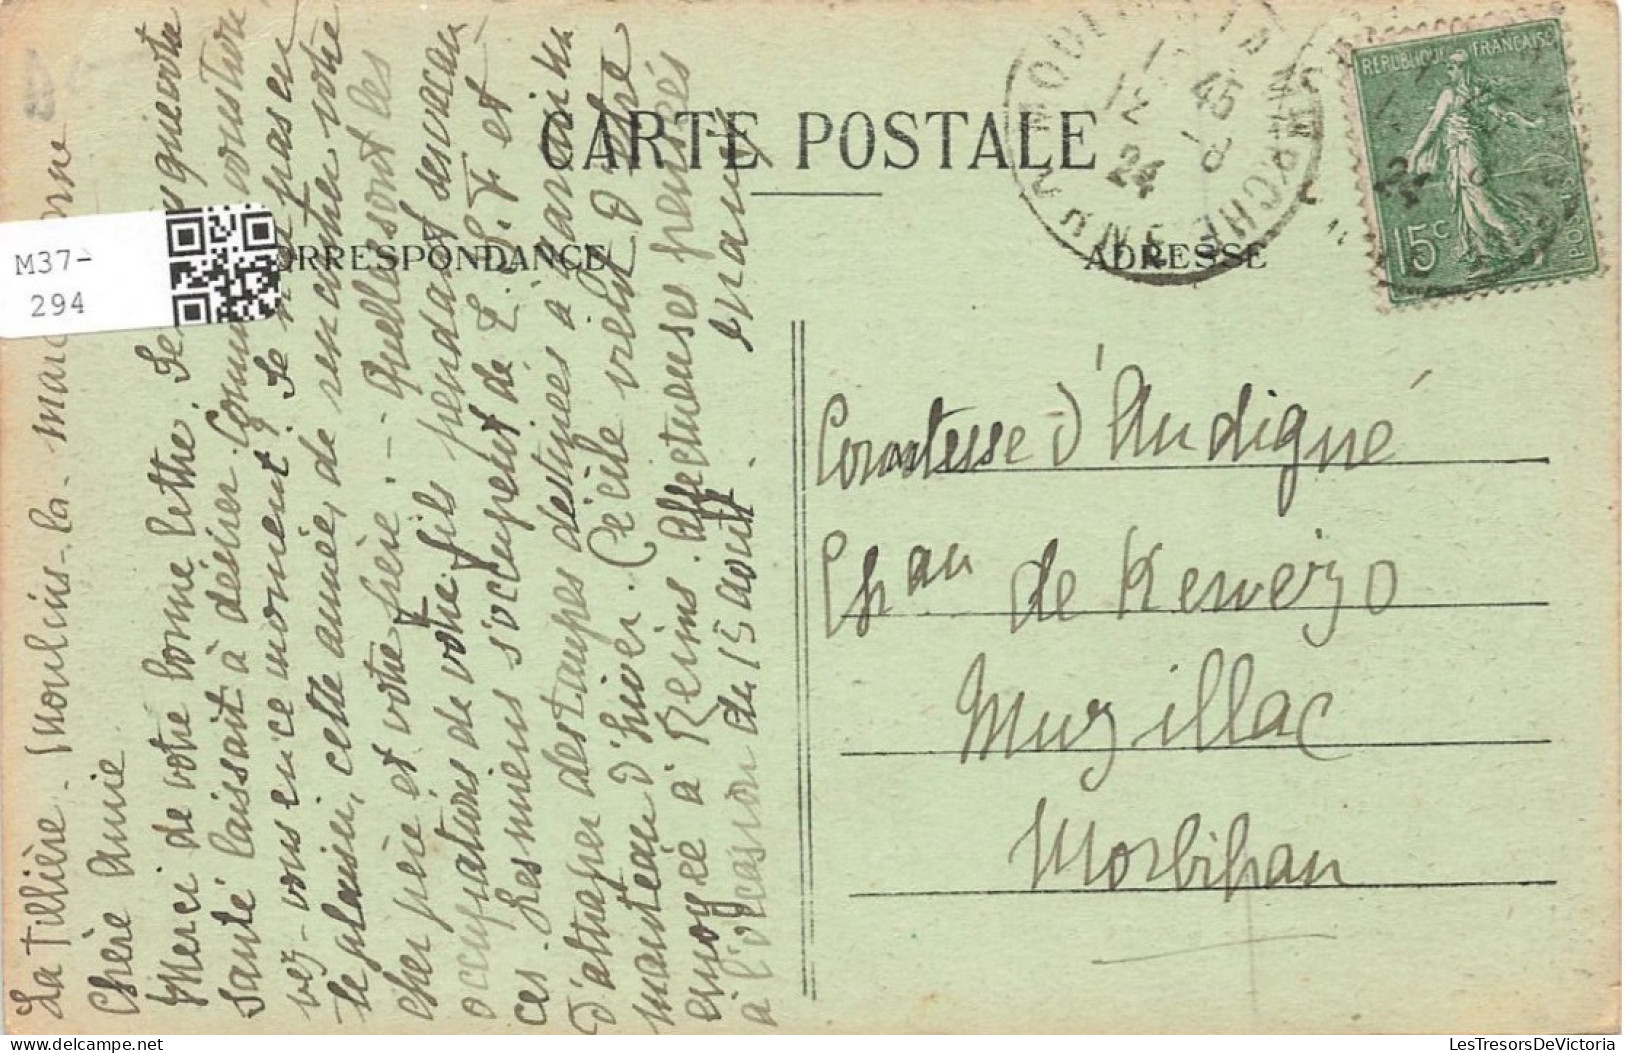 CARTE POSTALE
CORRESPONDANCE
ADRESSE
M37-
294
REPUBLIQUE FRANÇAISE
15c
POSTES
12
45
24
8
MARNE
La Tuilière. Moulins-la-marche orne
Chère Amie
Merci de votre bonne lettre. Je que votre
santé laissait à désirer. Comment vous trou
vez-vous en ce moment? Je n'ai pas eu
le plaisir, cette année, de rencontrer votre
cher père et votre frère - Quelles sont les
occupations de votre fils pendant ses vacan
ces. Les miens s'occupent de T. S. F et
d'attraper des taupes destinées à garnir un
manteau d'hiver. Cécile vient d'être
envoyée à Reims. Affectueuses pensées
à l'occasion du 15 août.
Comtesse d'Andigné
Chau de Kervezo
Muzillac
Morbihan
LesTresorsDeVictoria